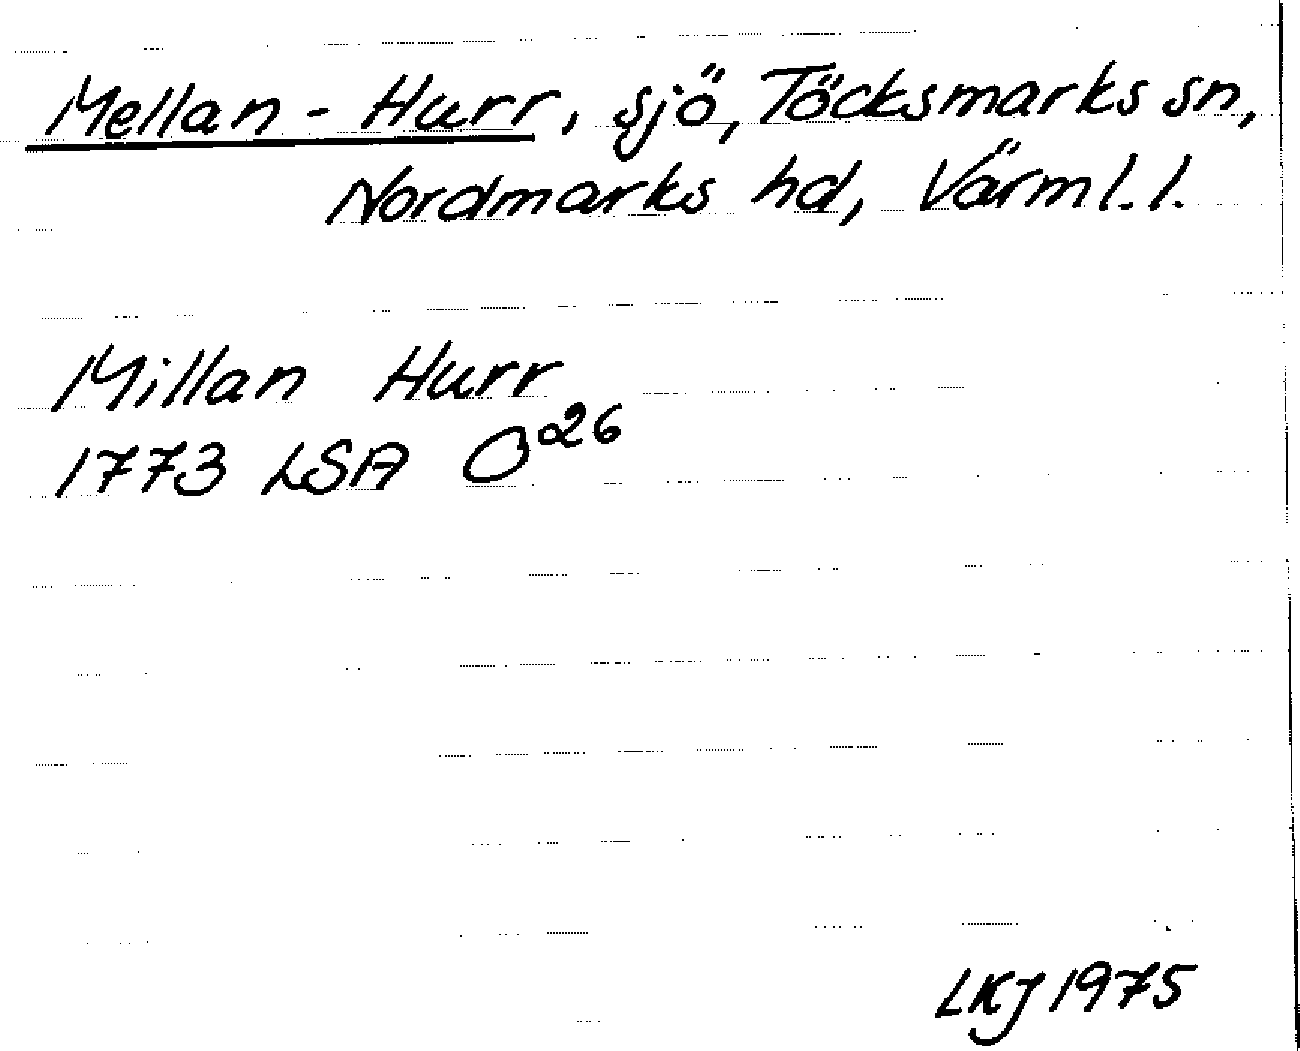 Mellan-Hurr, sjö, Töcksmarks sn,
Nordmarks hd, Värml. l.
Millan Hurr
1773 LSA O°26
LKJ 1975